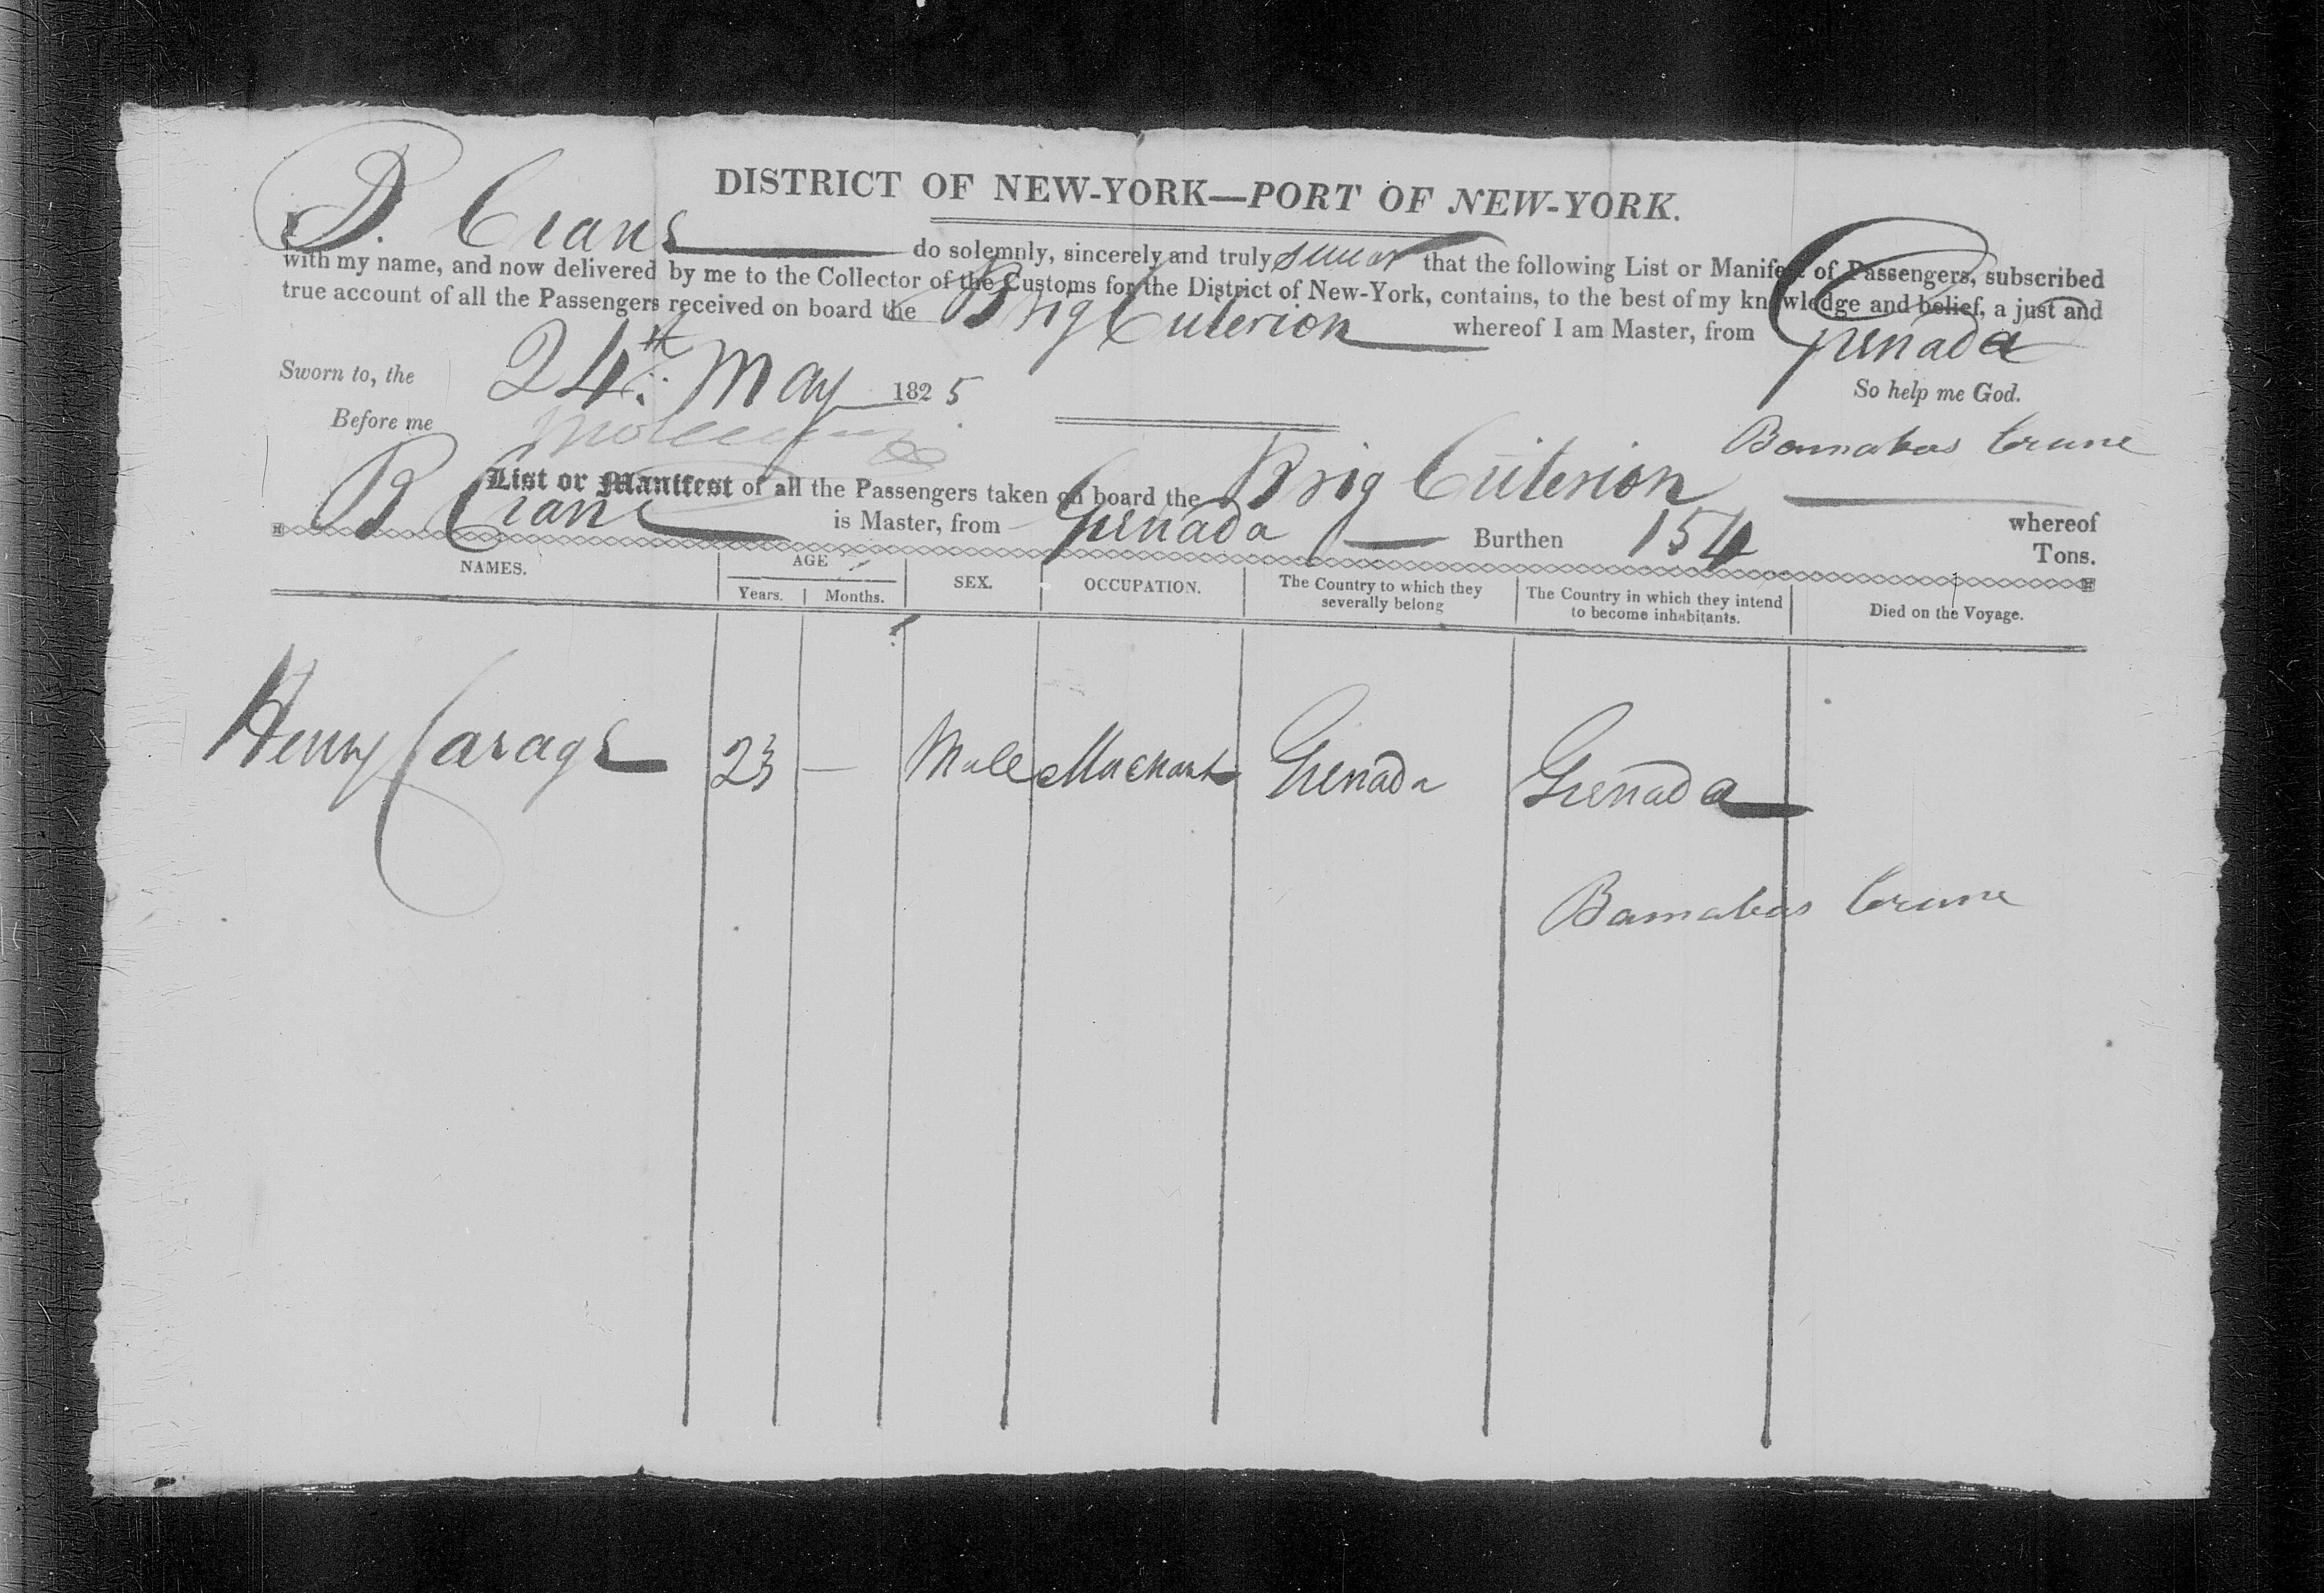 DISTRICT OF NEW-YORK—PORT OF NEW-YORK.
I B. Crane do solemnly, sincerely and truly swear that the following List or Manifest of Passengers, subscribed
with my name, and now delivered by me to the Collector of the Customs for the District of New-York, contains, to the best of my knowledge and belief, a just and
true account of all the Passengers received on board the Brig Criterion whereof I am Master, from Grenada
Sworn to, the 24th May 1825 So help me God.
Before me Barnabas Crane
List or Manifest of all the Passengers taken on board the Brig Criterion whereof
B Crane is Master, from Grenada Burthen 154 Tons.
NAMES. AGE Years. Months. SEX. OCCUPATION. The Country to which they severally belong The Country in which they intend to become inhabitants. Died on the Voyage.
Henry 23 — Male Merchant Grenada Grenada
Barnabas Crane